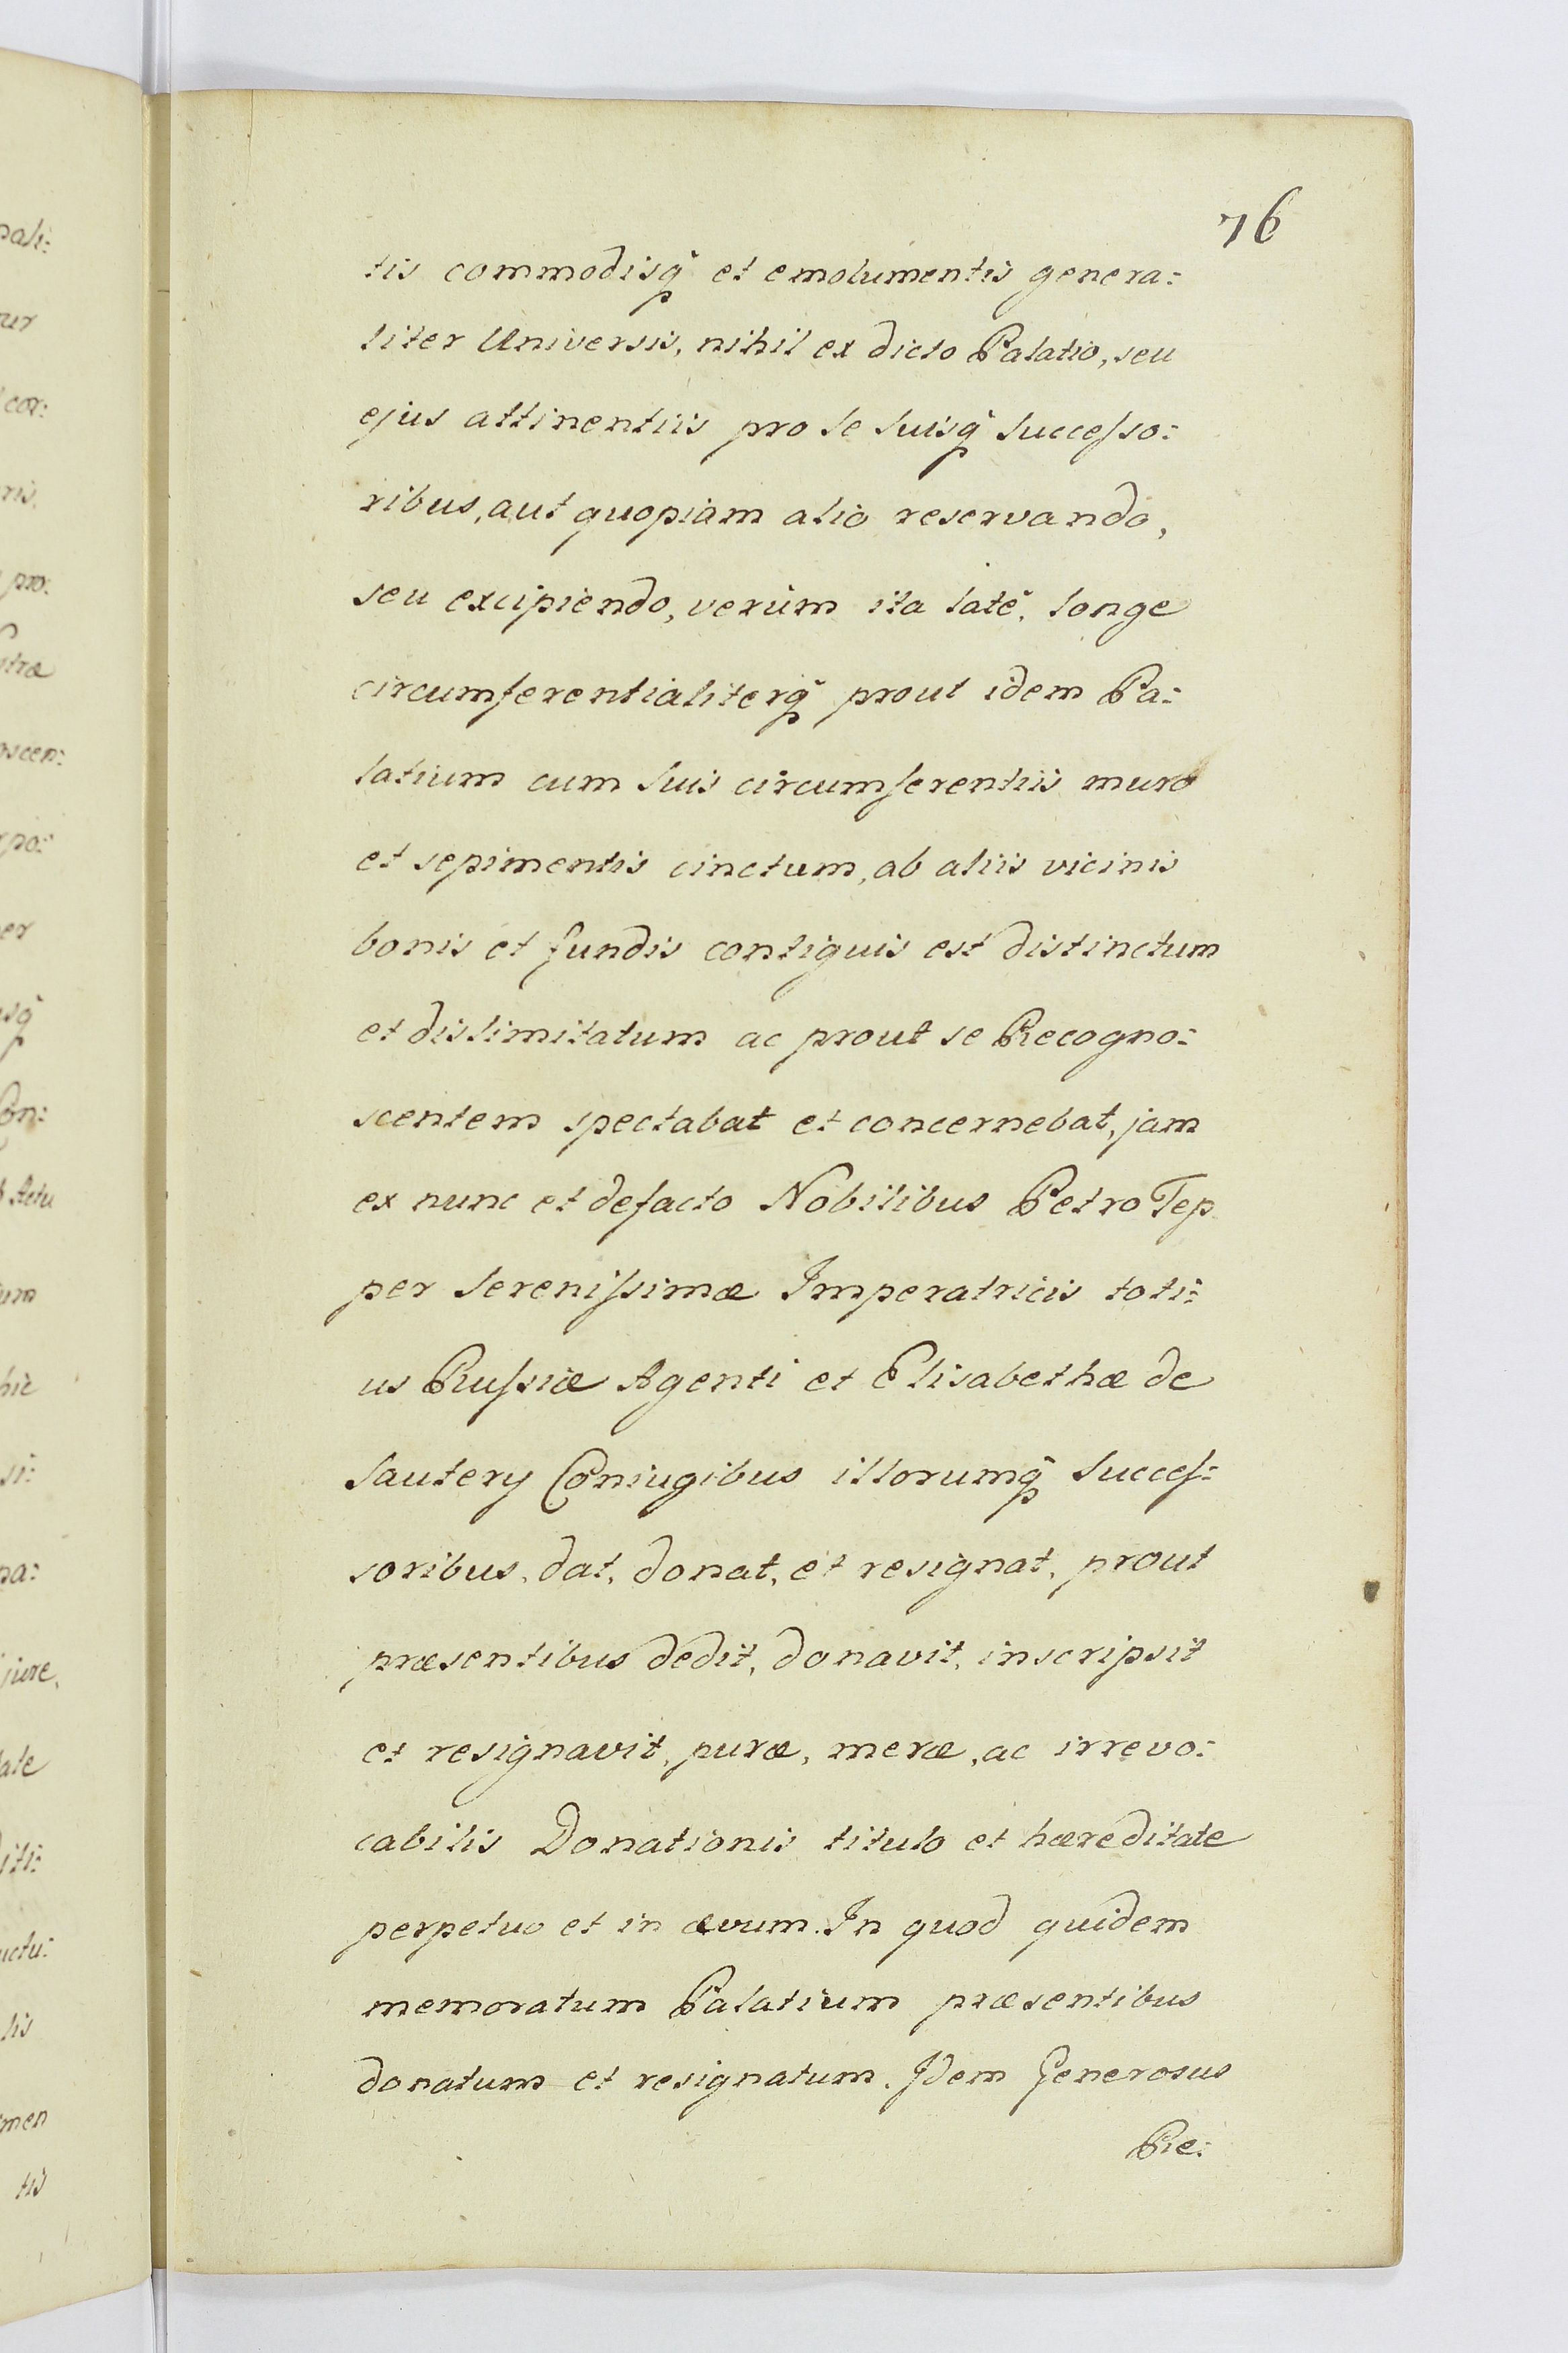 76
tis commodisq̃ et emolumentis genera:
liter Universis, nihil ex dicto Palatio, seu
ejus attinentiis pro se suisq̃ successo:
ribus, aut quopiam alio reservando,
seu excipiendo, verùm ita latè, longe
circumferentialiterq̃ prout idem Pa:
latium cum suis circumferentiis muro
et sepimentis cinctum, ab aliis vicinis
bonis et fundis contiguis est distinctum
et dislimitatum ac prout se Recogno:
scentem spectabat et concernebat, jam
ex nunc et defacto Nobilibus Petro Tep
per Serenissimæ Imperatricis toti:
us Russiæ Agenti et Elisabethæ de
Sautery Coniugibus illorumq̃ Succes:
soribus, dat, donat, et resignat, prout
præsentibus dedit, donavit, inscripsit
et resignavit, puræ, meræ, ac irrevo:
cabilis Donationis titulo et hæreditate
perpetuo et in ævum. In quod quidem
memoratum Palatium præsentibus
donatum et resignatum. Idem Generosus
Re: